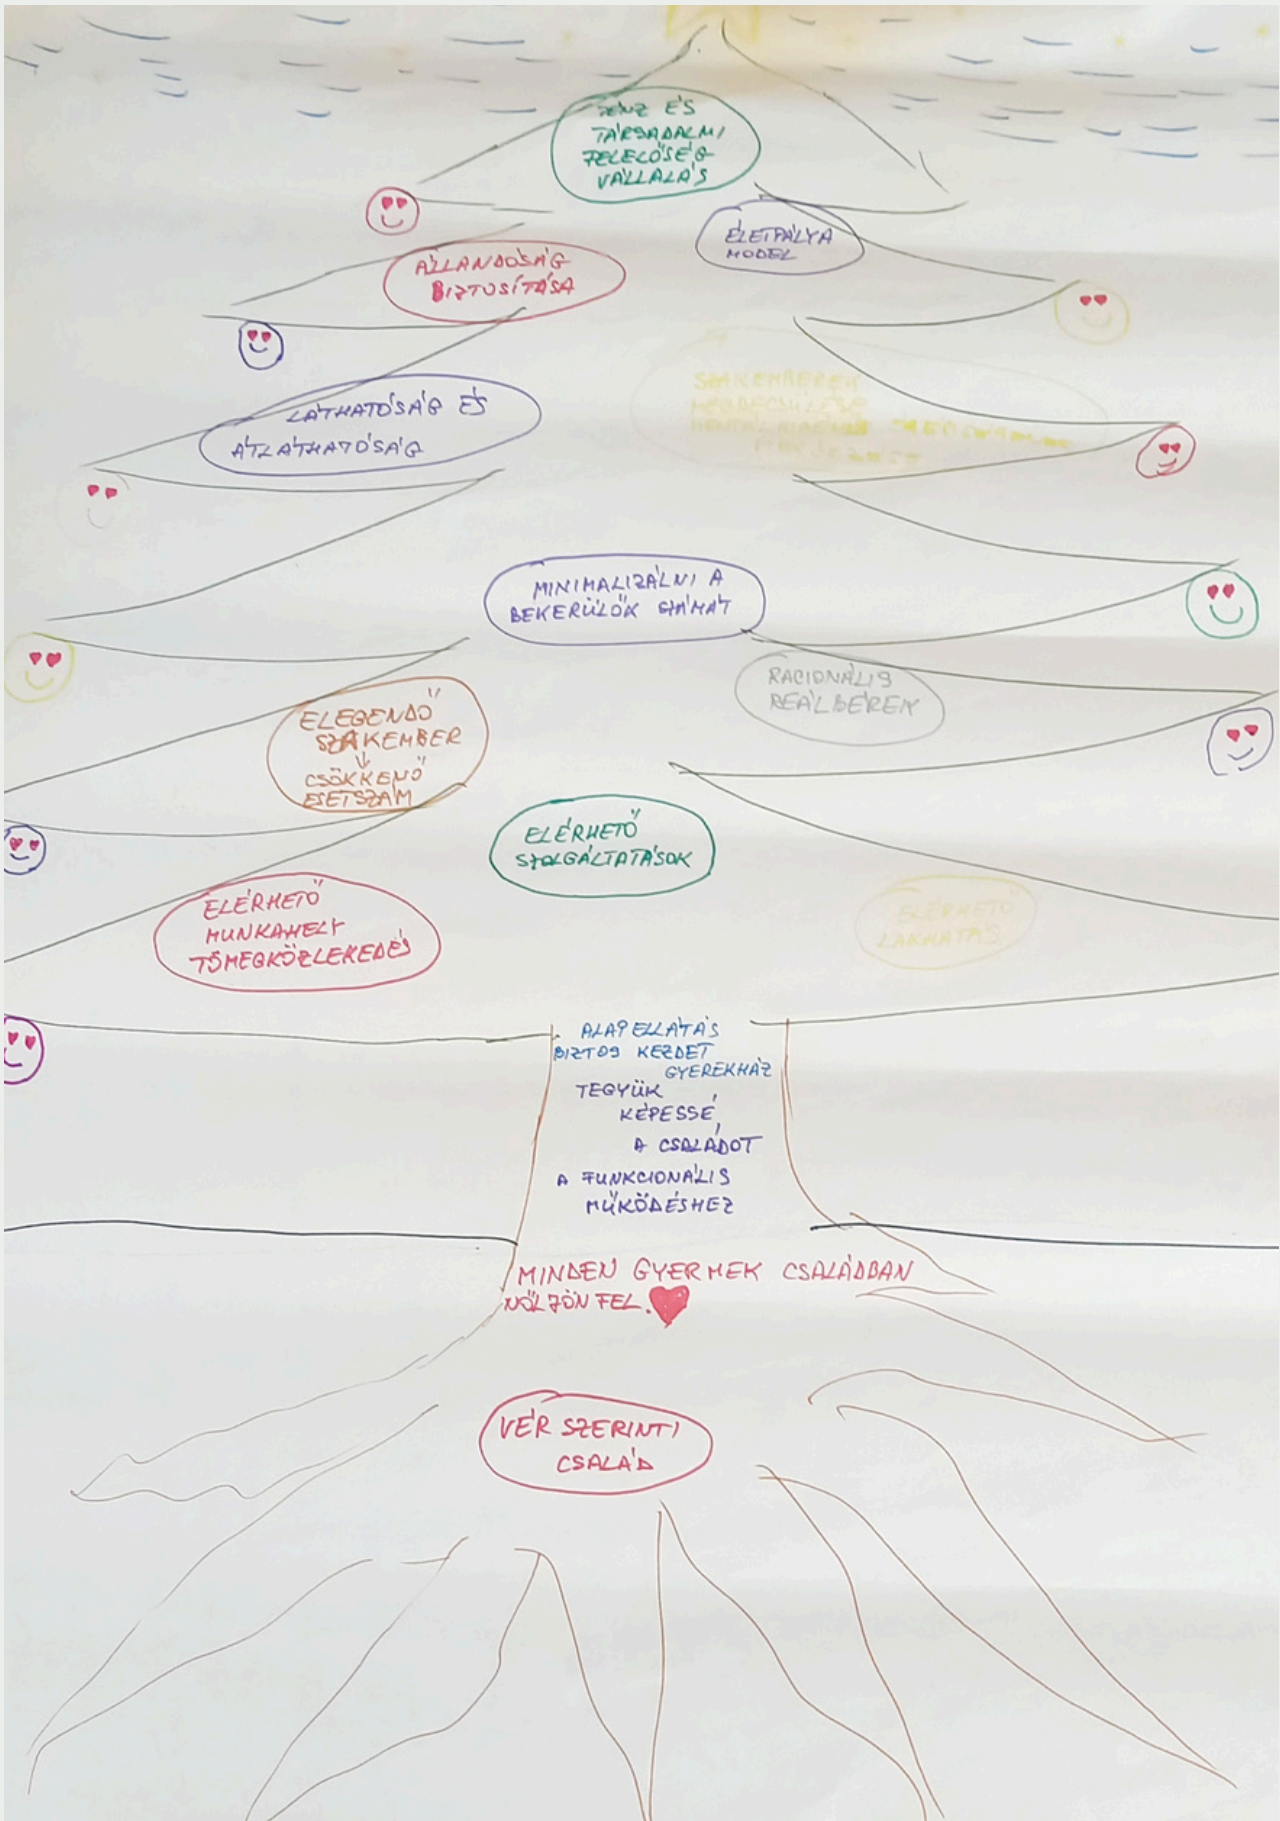 PÉNZ ÉS
TÁRSADALMI
FELELŐSÉG
VÁLLALÁS
ÉLETPÁLYA
MODEL
ÁLLANDÓSÁG
BIZTOSÍTÁSA
SZAKEMBEREK
MEGBECSÜLÉSE
LÁTHATÓSÁG ÉS
ÁTLÁTHATÓSÁG
MINIMALIZÁLNI A
BEKERÜLŐK SZÁMÁT
RACIONÁLIS
REÁLBÉREK
ELEGENDŐ
SZAKEMBER
↓
CSÖKKENŐ
ESETSZÁM
ELÉRHETŐ
SZOLGÁLTATÁSOK
ELÉRHETŐ
MUNKAHELY
TÖMEGKÖZLEKEDÉS
ELÉRHETŐ
LAKHATÁS
ALAPELLÁTÁS
BIZTOS KEZDET
GYEREKHÁZ
TEGYÜK
KÉPESSÉ
A CSALÁDOT
A FUNKCIONÁLIS
MŰKÖDÉSHEZ
MINDEN GYERMEK CSALÁDBAN
NŐLJÖN FEL.
VÉR SZERINTI
CSALÁD